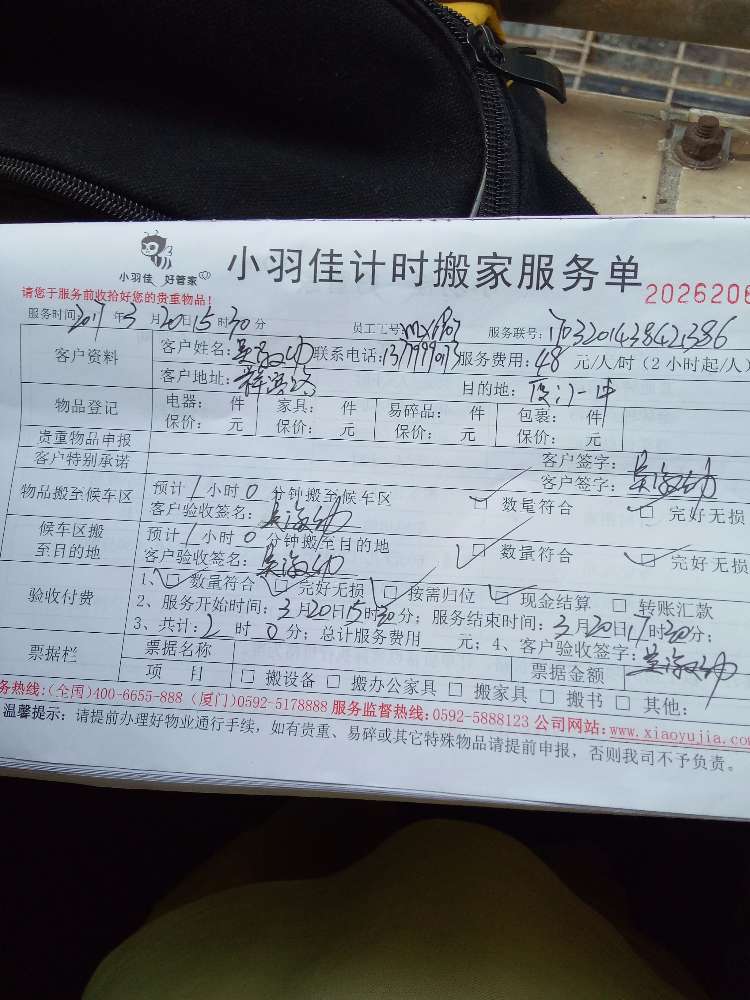 小羽佳 好管家
小羽佳计时搬家服务单
2026206
请您于服务前收拾好您的贵重物品！
服务时间：2017年3月20日15时30分 员工工号：mx6907 服务联号：
客户资料 客户姓名：吴海幼 联系电话： 服务费用：48 元/人/时（2小时起/人）
客户地址： 目的地：厦门一中
物品登记 电器： 件 家具： 件 易碎品： 件 包裹： 件
保价： 元 保价： 元 保价： 元 保价： 元
贵重物品申报 客户签字：吴海幼
客户特别承诺 客户签字：
物品搬至候车区 预计1小时0分钟搬至候车区 ☑ 数量符合 ☑ 完好无损
客户验收签名：吴海幼
候车区搬至目的地 预计1小时0分钟搬至目的地 ☑ 数量符合 ☑ 完好无损
客户验收签名：吴海幼
验收付费 1、☑ 数量符合 ☑ 完好无损 ☑ 按需归位 ☑ 现金结算 □ 转账汇款
2、服务开始时间：3月20日15时30分；服务结束时间：3月20日17时30分；
3、共计：2时0分；总计服务费用 元；4、客户验收签字：吴海幼
票据栏 票据名称 票据金额
项 目 □ 搬设备 □ 搬办公家具 □ 搬家具 □ 搬书 □ 其他：
务热线：(全国)400-6655-888 (厦门)0592-5178888 服务监督热线：0592-5888123 公司网站：www.xiaoyujia.com
温馨提示：请提前办理好物业通行手续，如有贵重、易碎或其它特殊物品请提前申报，否则我司不予负责。